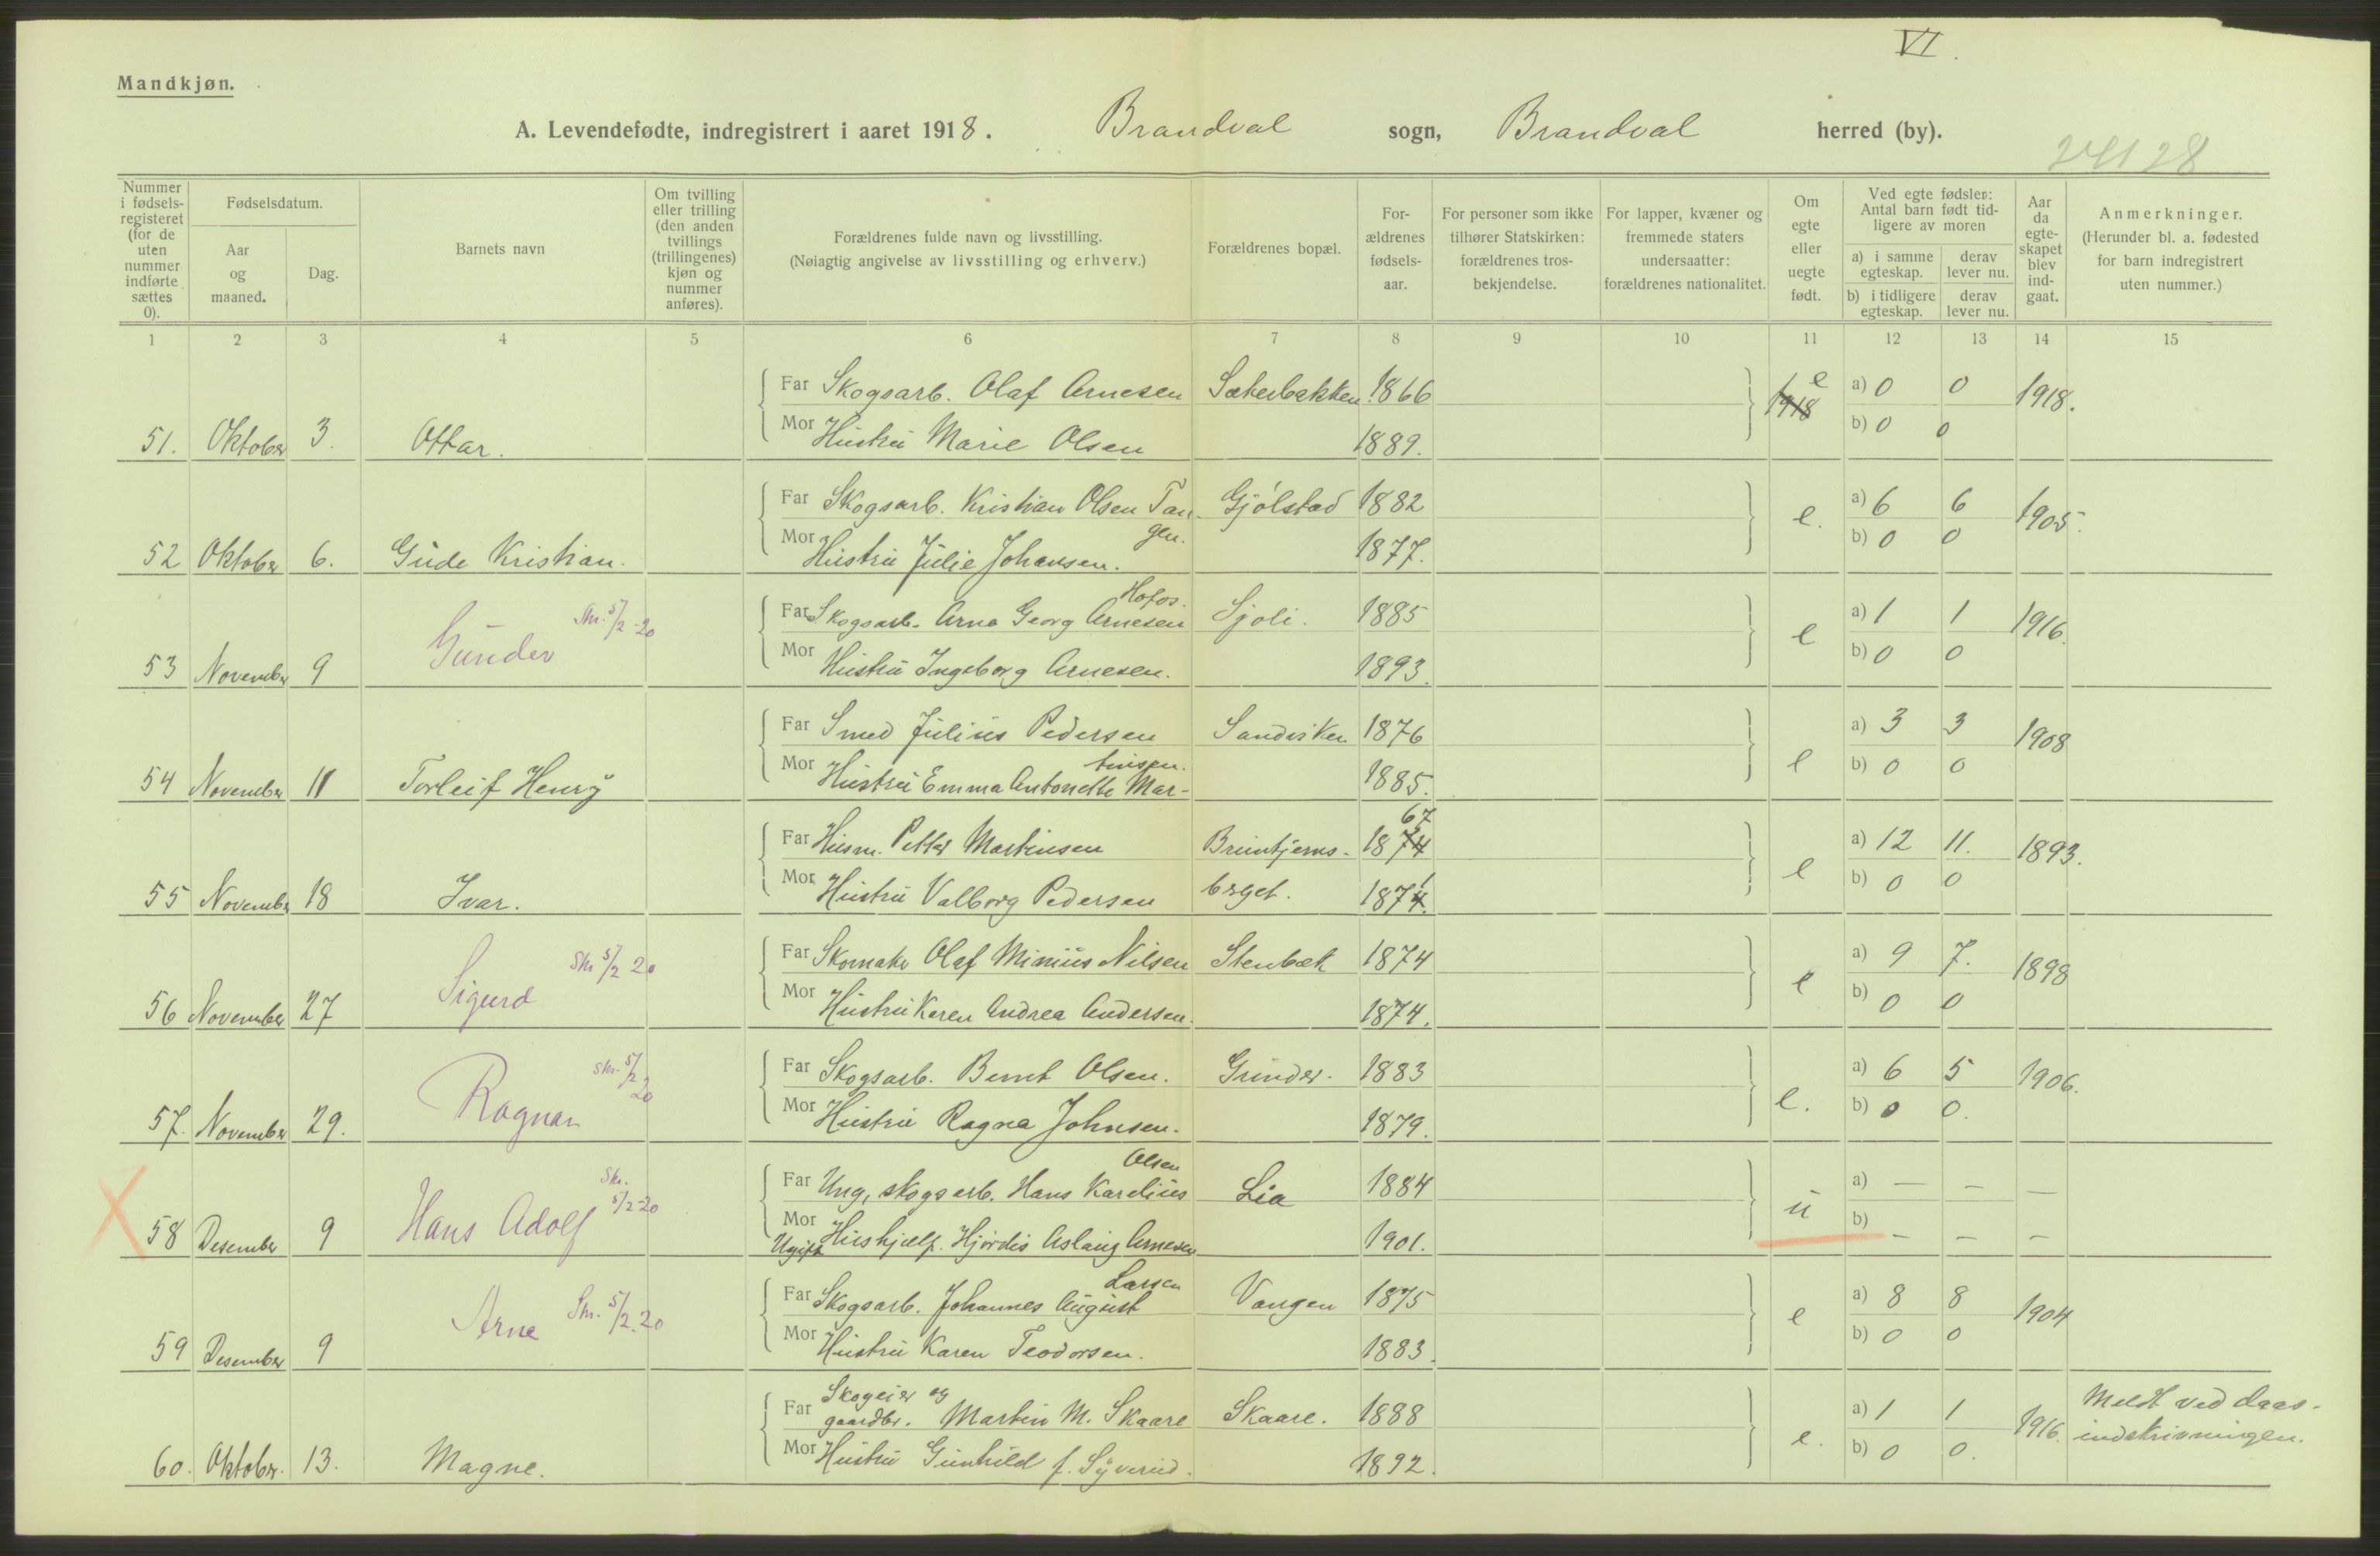 VI.
Mandkjøn.
A. Levendefødte, indregistrert i aaret 1918. Brandval sogn, Brandval herred (by).
24128
Nummer i fødselsregisteret (for de uten nummer indførte sættes 0).
Fødselsdatum.
Aar og maaned.
Dag.
Barnets navn
Om tvilling eller trilling (den anden tvillings (trillingenes) kjøn og nummer anføres).
Forældrenes fulde navn og livsstilling.
(Nøiagtig angivelse av livsstilling og erhverv.)
Forældrenes bopæl.
For-ældrenes fødsels-aar.
For personer som ikke tilhører Statskirken: forældrenes tros-bekjendelse.
For lapper, kvæner og fremmede staters undersaatter: forældrenes nationalitet.
Om egte eller uegte født.
Ved egte fødsler: Antal barn født tid-ligere av moren
a) i samme egteskap.
derav lever nu.
b) i tidligere egteskap.
derav lever nu.
Aar da egte-skapet blev ind-gaat.
Anmerkninger.
(Herunder bl. a. fødested for barn indregistrert uten nummer.)
1 2 3 4 5 6 7 8 9 10 11 12 13 14 15
Far Skogsarb. Olaf Arnesen Sæterbakken 1866 e 1918 a) 0 0 1918.
51. Oktober 3. Ottar. Mor Hustru Marie Olsen 1889. b) 0 0
Far Skogsarb. Kristian Olsen Tan- Gjölstad 1882 e. a) 6 6 1905.
gen.
52 Oktober 6. Gude Kristian. Mor Hustru Julie Johansen. 1877. b) 0 0
Hofos.
Skr. 5/2-20 Far Skogsarb. Arne Georg Arnesen Sjoli. 1885 e a) 1 1 1916.
53 November 9 Gunder Mor Hustru Ingeborg Arnesen. 1893. b) 0 0
Far Smed Julius Pedersen Sandviken 1876 a) 3 3 1908
tinsen.
54 November 11 Torleif Henry Mor Hustru Emma Antonette Mar- 1885. e b) 0 0
67
Far Husm. Petter Martinsen Bruntjerns- 1874 a) 12 11. 1893.
1
55 November 18 Ivar. Mor Hustru Valborg Pedersen berget. 1874. e b) 0 0
Skr 5/2 20 Far Skomaker Olaf Minius Nilsen Stenbæk 1874 a) 9 7. 1898
56 November 27 Sigurd Mor Hustru Karen Andrea Andersen. 1874. e b) 0 0
Skr. 5/2 20 Far Skogsarb. Bernt Olsen. Grinder. 1883 a) 6 5 1906.
57. November 29. Ragnar Mor Hustru Ragna Johnsen. 1879. e. b) 0 0.
Olsen
Skr. 5/2-20 Far Ung. skogsarb. Hans Karelius Lia 1884 u a) — — —
58 Desember 9 Hans Adolf Mor Ugift Hushjælp. Hjördis Aslaug Arnesen 1901. b) — — —
Larsen
Skr. 5/2.20 Far Skogsarb. Johannes August Vangen 1875 a) 8 8 1904
59 Desember 9 Arne Mor Hustru Karen Teodorsen. 1883. e b) 0 0
Skogeier og
Far gaardbr. Martin M. Skaare Skaare. 1888 a) 1 1 1916. Meldt ved daas-
60. Oktober. 13. Magne. Mor Hustru Gunhild f. Syverud. 1892. e. b) 0 0. indskrivningen.